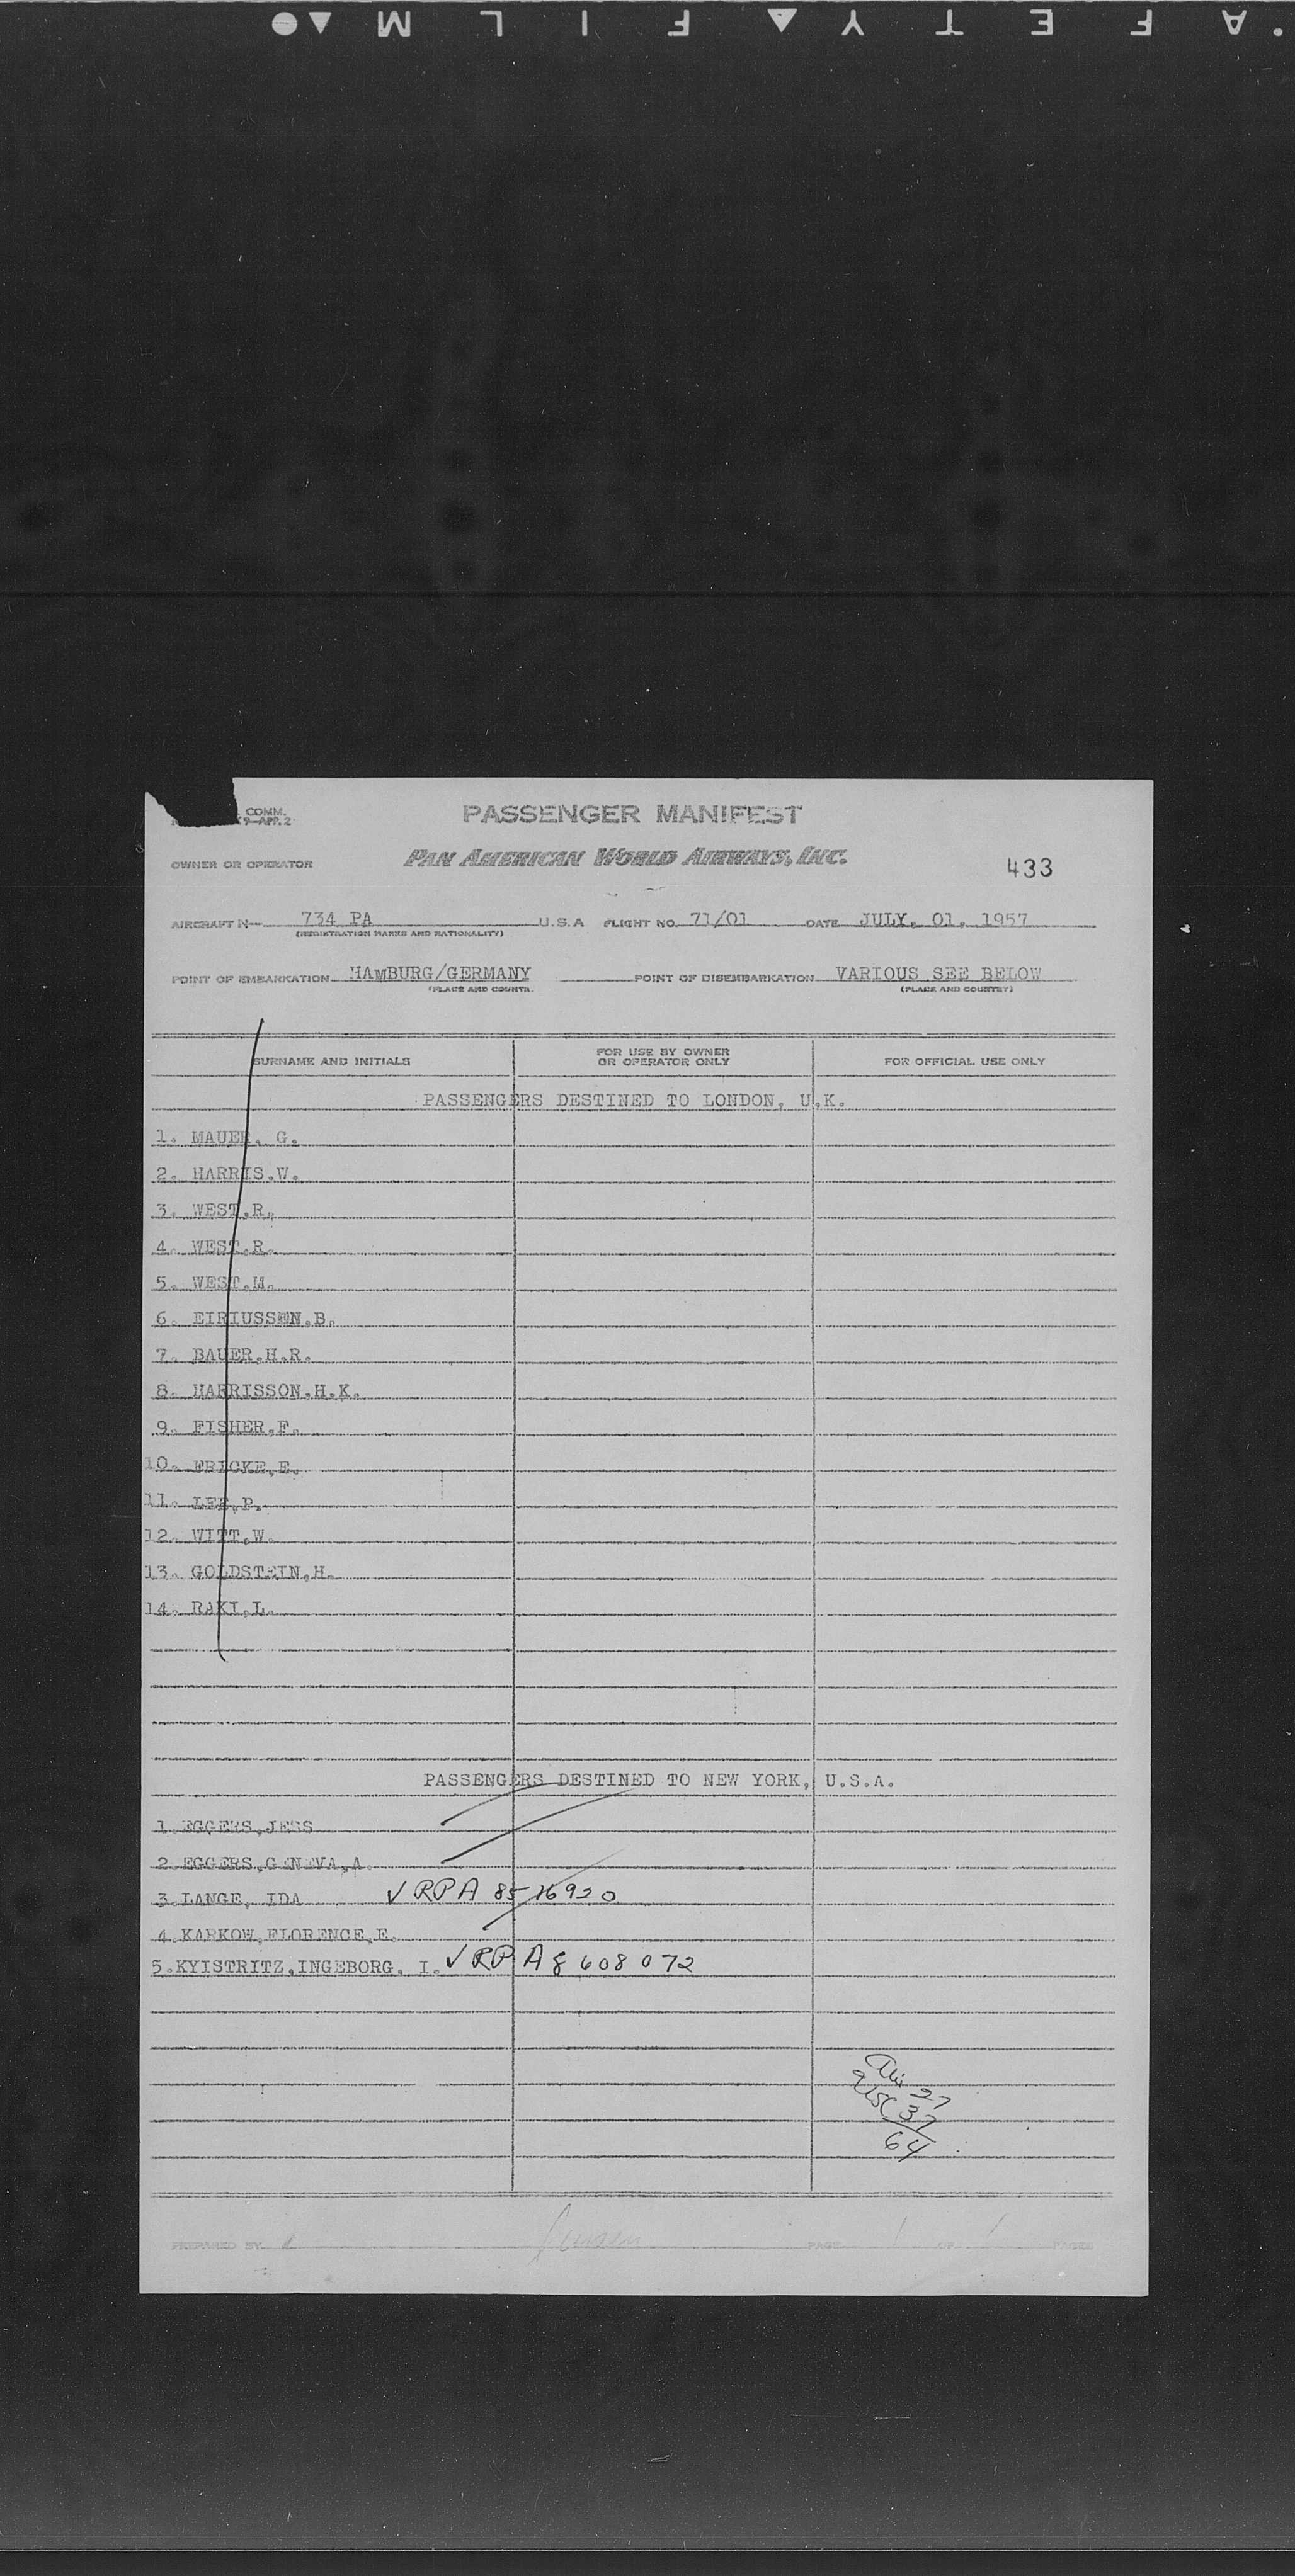 SAFETY FILM
COMM.
9-APR.2
PASSENGER MANIFEST
OWNER OR OPERATOR PAN AMERICAN WORLD AIRWAYS, INC. 433
AIRCRAFT N— 734 PA U.S.A FLIGHT NO. 71/01 DATE JULY, 01, 1957
(REGISTRATION MARKS AND NATIONALITY)
POINT OF EMBARKATION HAMBURG/GERMANY POINT OF DISEMBARKATION VARIOUS SEE BELOW
(PLACE AND COUNTR. (PLACE AND COUNTRY)
SURNAME AND INITIALS FOR USE BY OWNER OR OPERATOR ONLY FOR OFFICIAL USE ONLY
PASSENGERS DESTINED TO LONDON, U.K.
1. MAUER. G.
2. HARRIS.W.
3. WEST.R.
4. WEST.R.
5. WEST.M.
6. EIRIUSSEN.B.
7. BAUER.H.R.
8. HARRISSON.H.K.
9. FISHER.F.
10. FRICKE.E.
11. LEE.P.
12. WITT.W.
13. GOLDSTEIN.H.
14. RAKI.L.
PASSENGERS DESTINED TO NEW YORK, U.S.A.
1.EGGERS,JESS
2.EGGERS,GENEVA,A.
3.LANGE, IDA √ RP A 8516920
4.KARKOW,FLORENCE,E.
5.KYISTRITZ.INGEBORG. I. √ RP A 8 608 072
27
USC 37
64
PREPARED BY PAGE 1 OF 1 PAGES